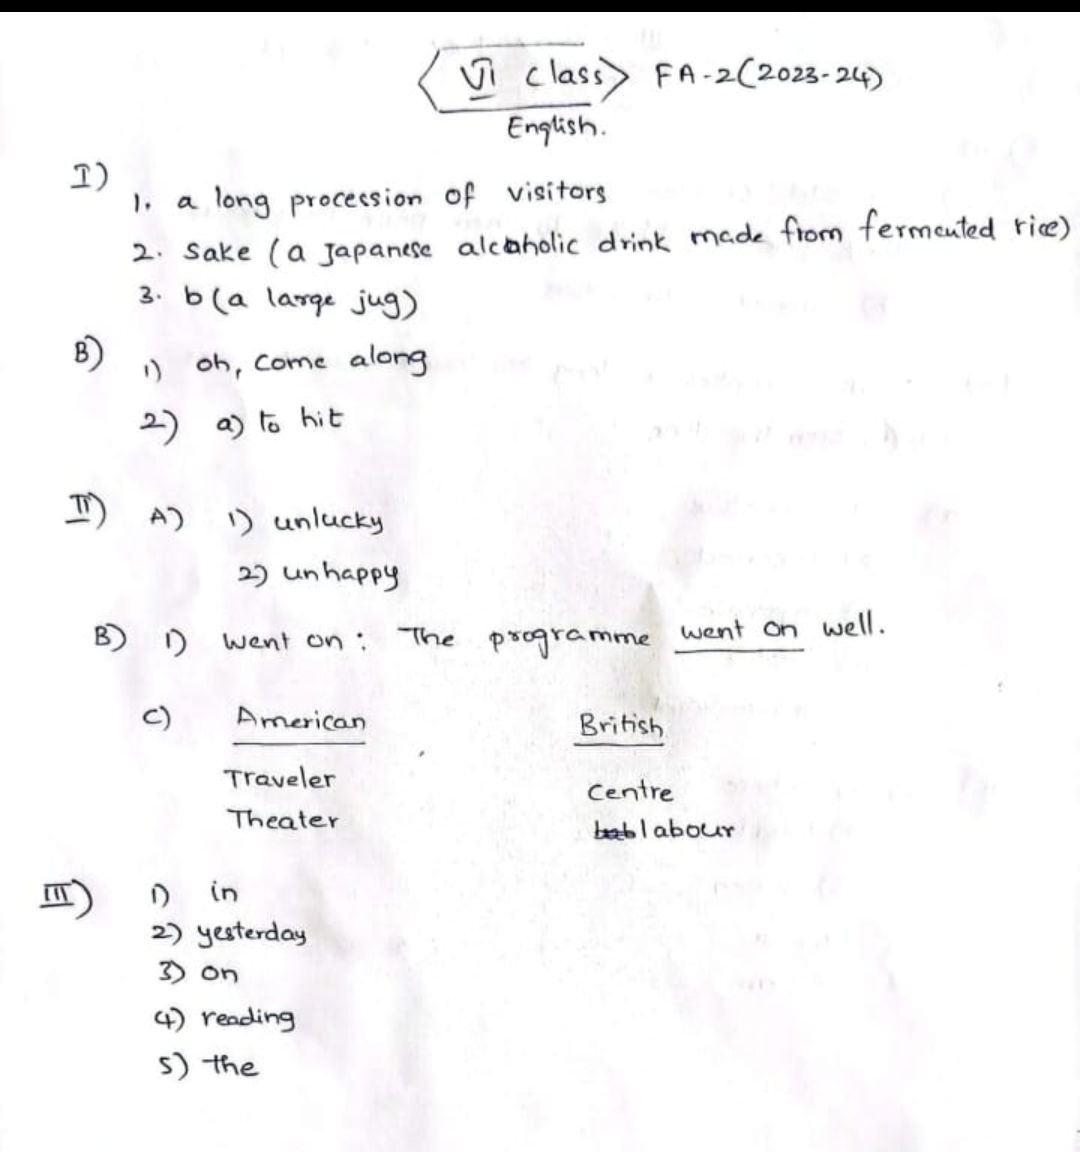 VI Class FA-2(2023-24)
English.
I)
1. a long procession of visitors
2. Sake (a Japanese alcoholic drink made from fermented rice)
3. b(a large jug)
B)
1) oh, come along
2) a) to hit
II) A) 1) unlucky
2) unhappy
B) 1) went on : The programme went on well.
C) American British
Traveler Centre
Theater labour
III) 1) in
2) yesterday
3) on
4) reading
5) the